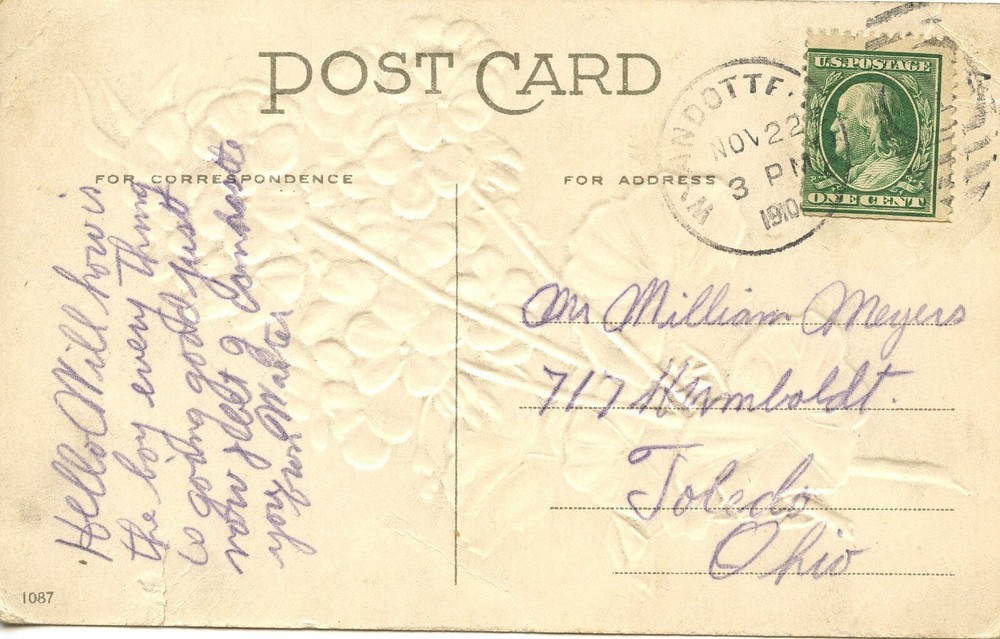 POST CARD
FOR CORRESPONDENCE
FOR ADDRESS
WYANDOTTE.
NOV 22
3 PM
1910
U.S. POSTAGE
ONE CENT
Hello Will how is
the boy every Thing
is going good just
now
you from Walter
Mr William Meyers
717 Humboldt.
Toledo
Ohio
1087